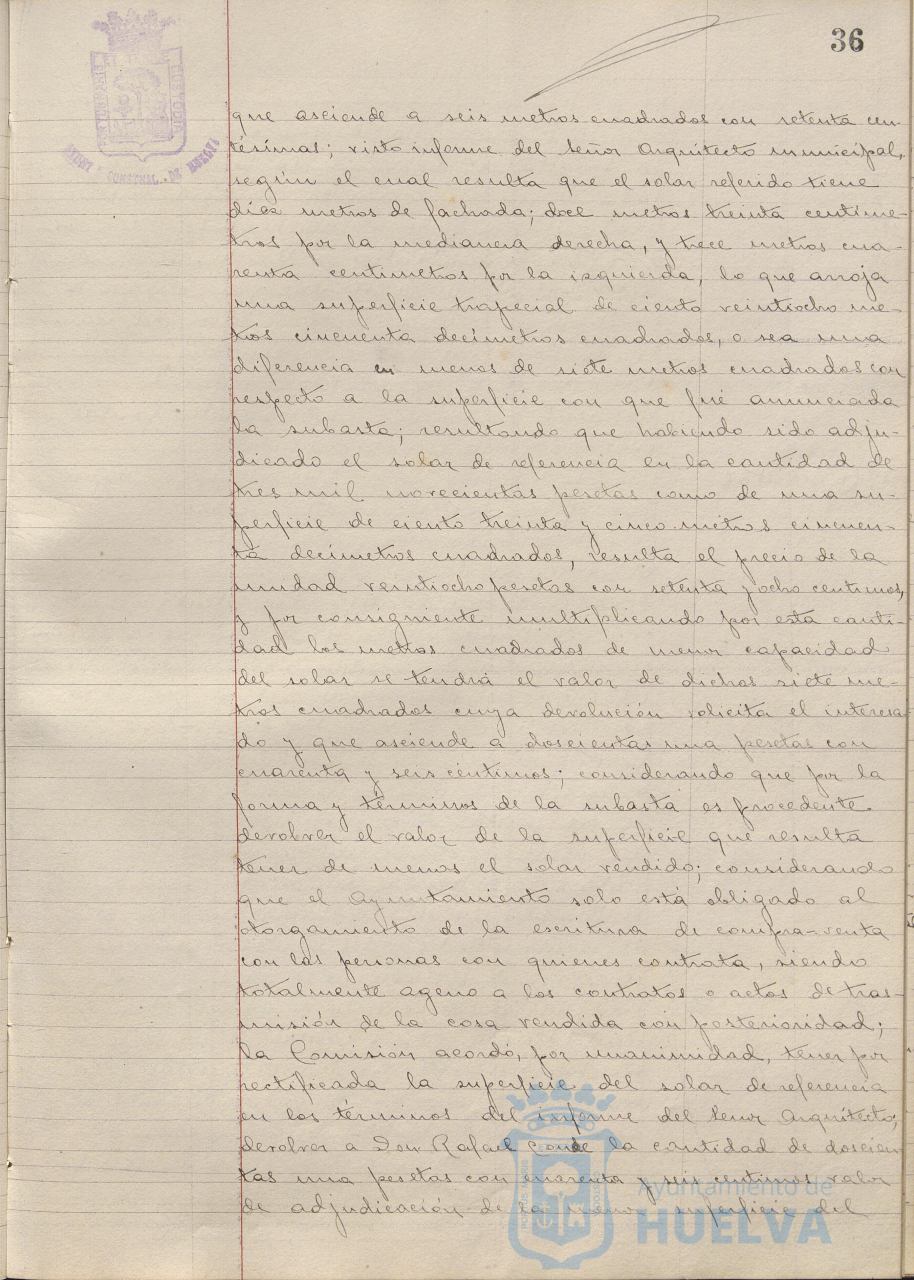 36
que asciende a seis metros cuadrados con setenta cen-
tésimas; visto informe del Señor Arquitecto municipal,
según el cual resulta que el solar referido tiene
diez metros de fachada; doce metros treinta centíme-
tros por la medianera derecha, y trece metros cua-
renta centímetros por la izquierda, lo que arroja
una superficie trapecial de ciento veintiocho me-
tros cincuenta decímetros cuadrados, o sea una
diferencia en menos de siete metros cuadrados con
respecto a la superficie con que fué anunciada
la subasta; resultando que habiendo sido adju-
dicado el solar de referencia en la cantidad de
tres mil novecientas pesetas como de una su-
perficie de ciento treinta y cinco metros cincuen-
ta decímetros cuadrados, resulta el precio de la
unidad veintiocho pesetas con setenta y ocho centimos,
y por consigniente multiplicando por esta canti-
dad los metros cuadrados de menor capacidad
del solar se tendrá el valor de dichos siete me-
tros cuadrados cuya devolución solicita el interesa-
do y que asciende a doscientas una pesetas con
cuarenta y seis céntimos; considerando que por la
forma y términos de la subasta es procedente
devolver el valor de la superficie que resulta
tener de menos el solar vendido; considerando
que el Ayuntamiento solo está obligado al
otorgamiento de la escritura de compra-venta
con las personas con quienes contrata, siendo
totalmente ageno a los contratos o actos de tras-
misión de la cosa vendida con posterioridad;
la Comisión acordó, por unanimidad, tener por
rectificada la superficie del solar de referencia
en los términos del informe del Señor Arquitecto;
devolver a Don Rafael Conde la cantidad de doscien-
tas una pesetas con cuarenta y seis centimos valor
de adjudicación de la menor superficie del
Ayuntamiento de
HUELVA